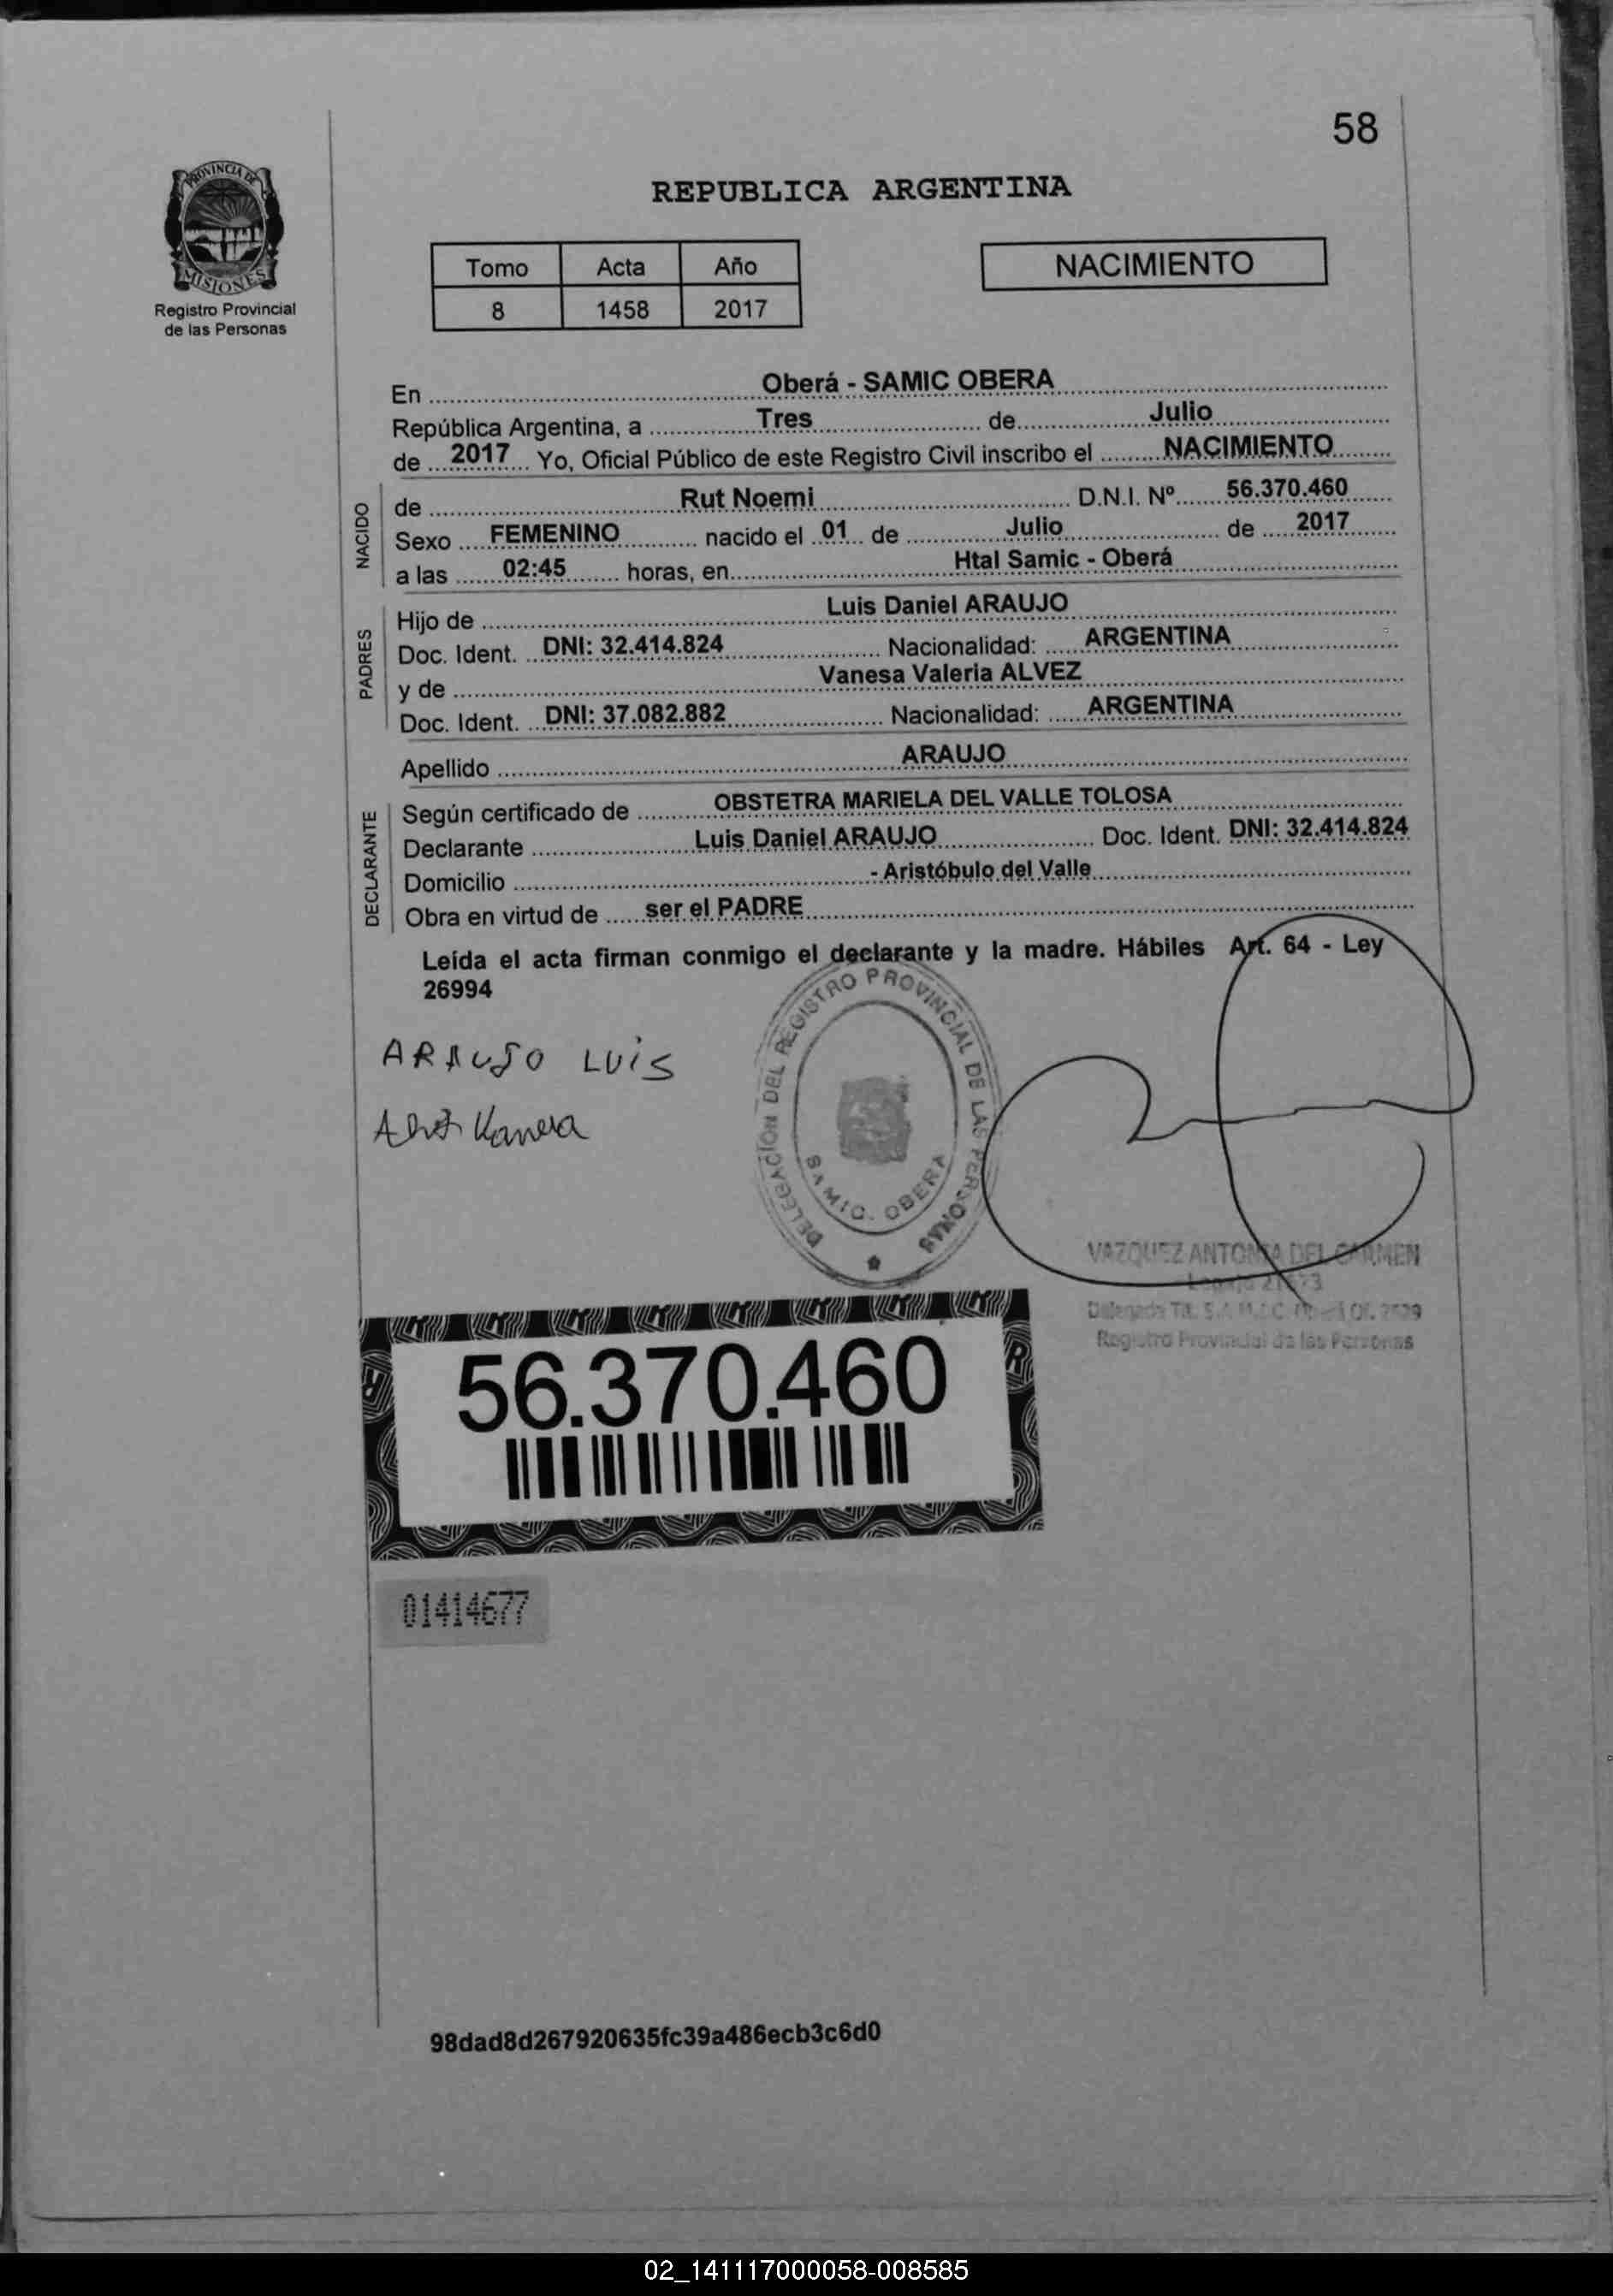 58
PROVINCIA DE
MISIONES
Registro Provincial
de las Personas
REPUBLICA ARGENTINA
Tomo Acta Año
8 1458 2017
NACIMIENTO
En Oberá - SAMIC OBERA
República Argentina, a Tres de Julio
de 2017 Yo, Oficial Público de este Registro Civil inscribo el NACIMIENTO
NACIDO
de Rut Noemi D.N.I. Nº 56.370.460
Sexo FEMENINO nacido el 01 de Julio de 2017
a las 02:45 horas, en Htal Samic - Oberá
PADRES
Hijo de Luis Daniel ARAUJO
Doc. Ident. DNI: 32.414.824 Nacionalidad: ARGENTINA
y de Vanesa Valeria ALVEZ
Doc. Ident. DNI: 37.082.882 Nacionalidad: ARGENTINA
Apellido ARAUJO
DECLARANTE
Según certificado de OBSTETRA MARIELA DEL VALLE TOLOSA
Declarante Luis Daniel ARAUJO Doc. Ident. DNI: 32.414.824
Domicilio - Aristóbulo del Valle
Obra en virtud de ser el PADRE
Leída el acta firman conmigo el declarante y la madre. Hábiles Art. 64 - Ley
26994
ARAUJO LUIS
DELEGACION DEL REGISTRO PROVINCIAL DE LAS PERSONAS
SAMIC. OBERA
VAZQUEZ ANTONIA DEL CARMEN
Registro Provincial de las Personas
56.370.460
01414677
98dad8d267920635fc39a486ecb3c6d0
02_141117000058-008585